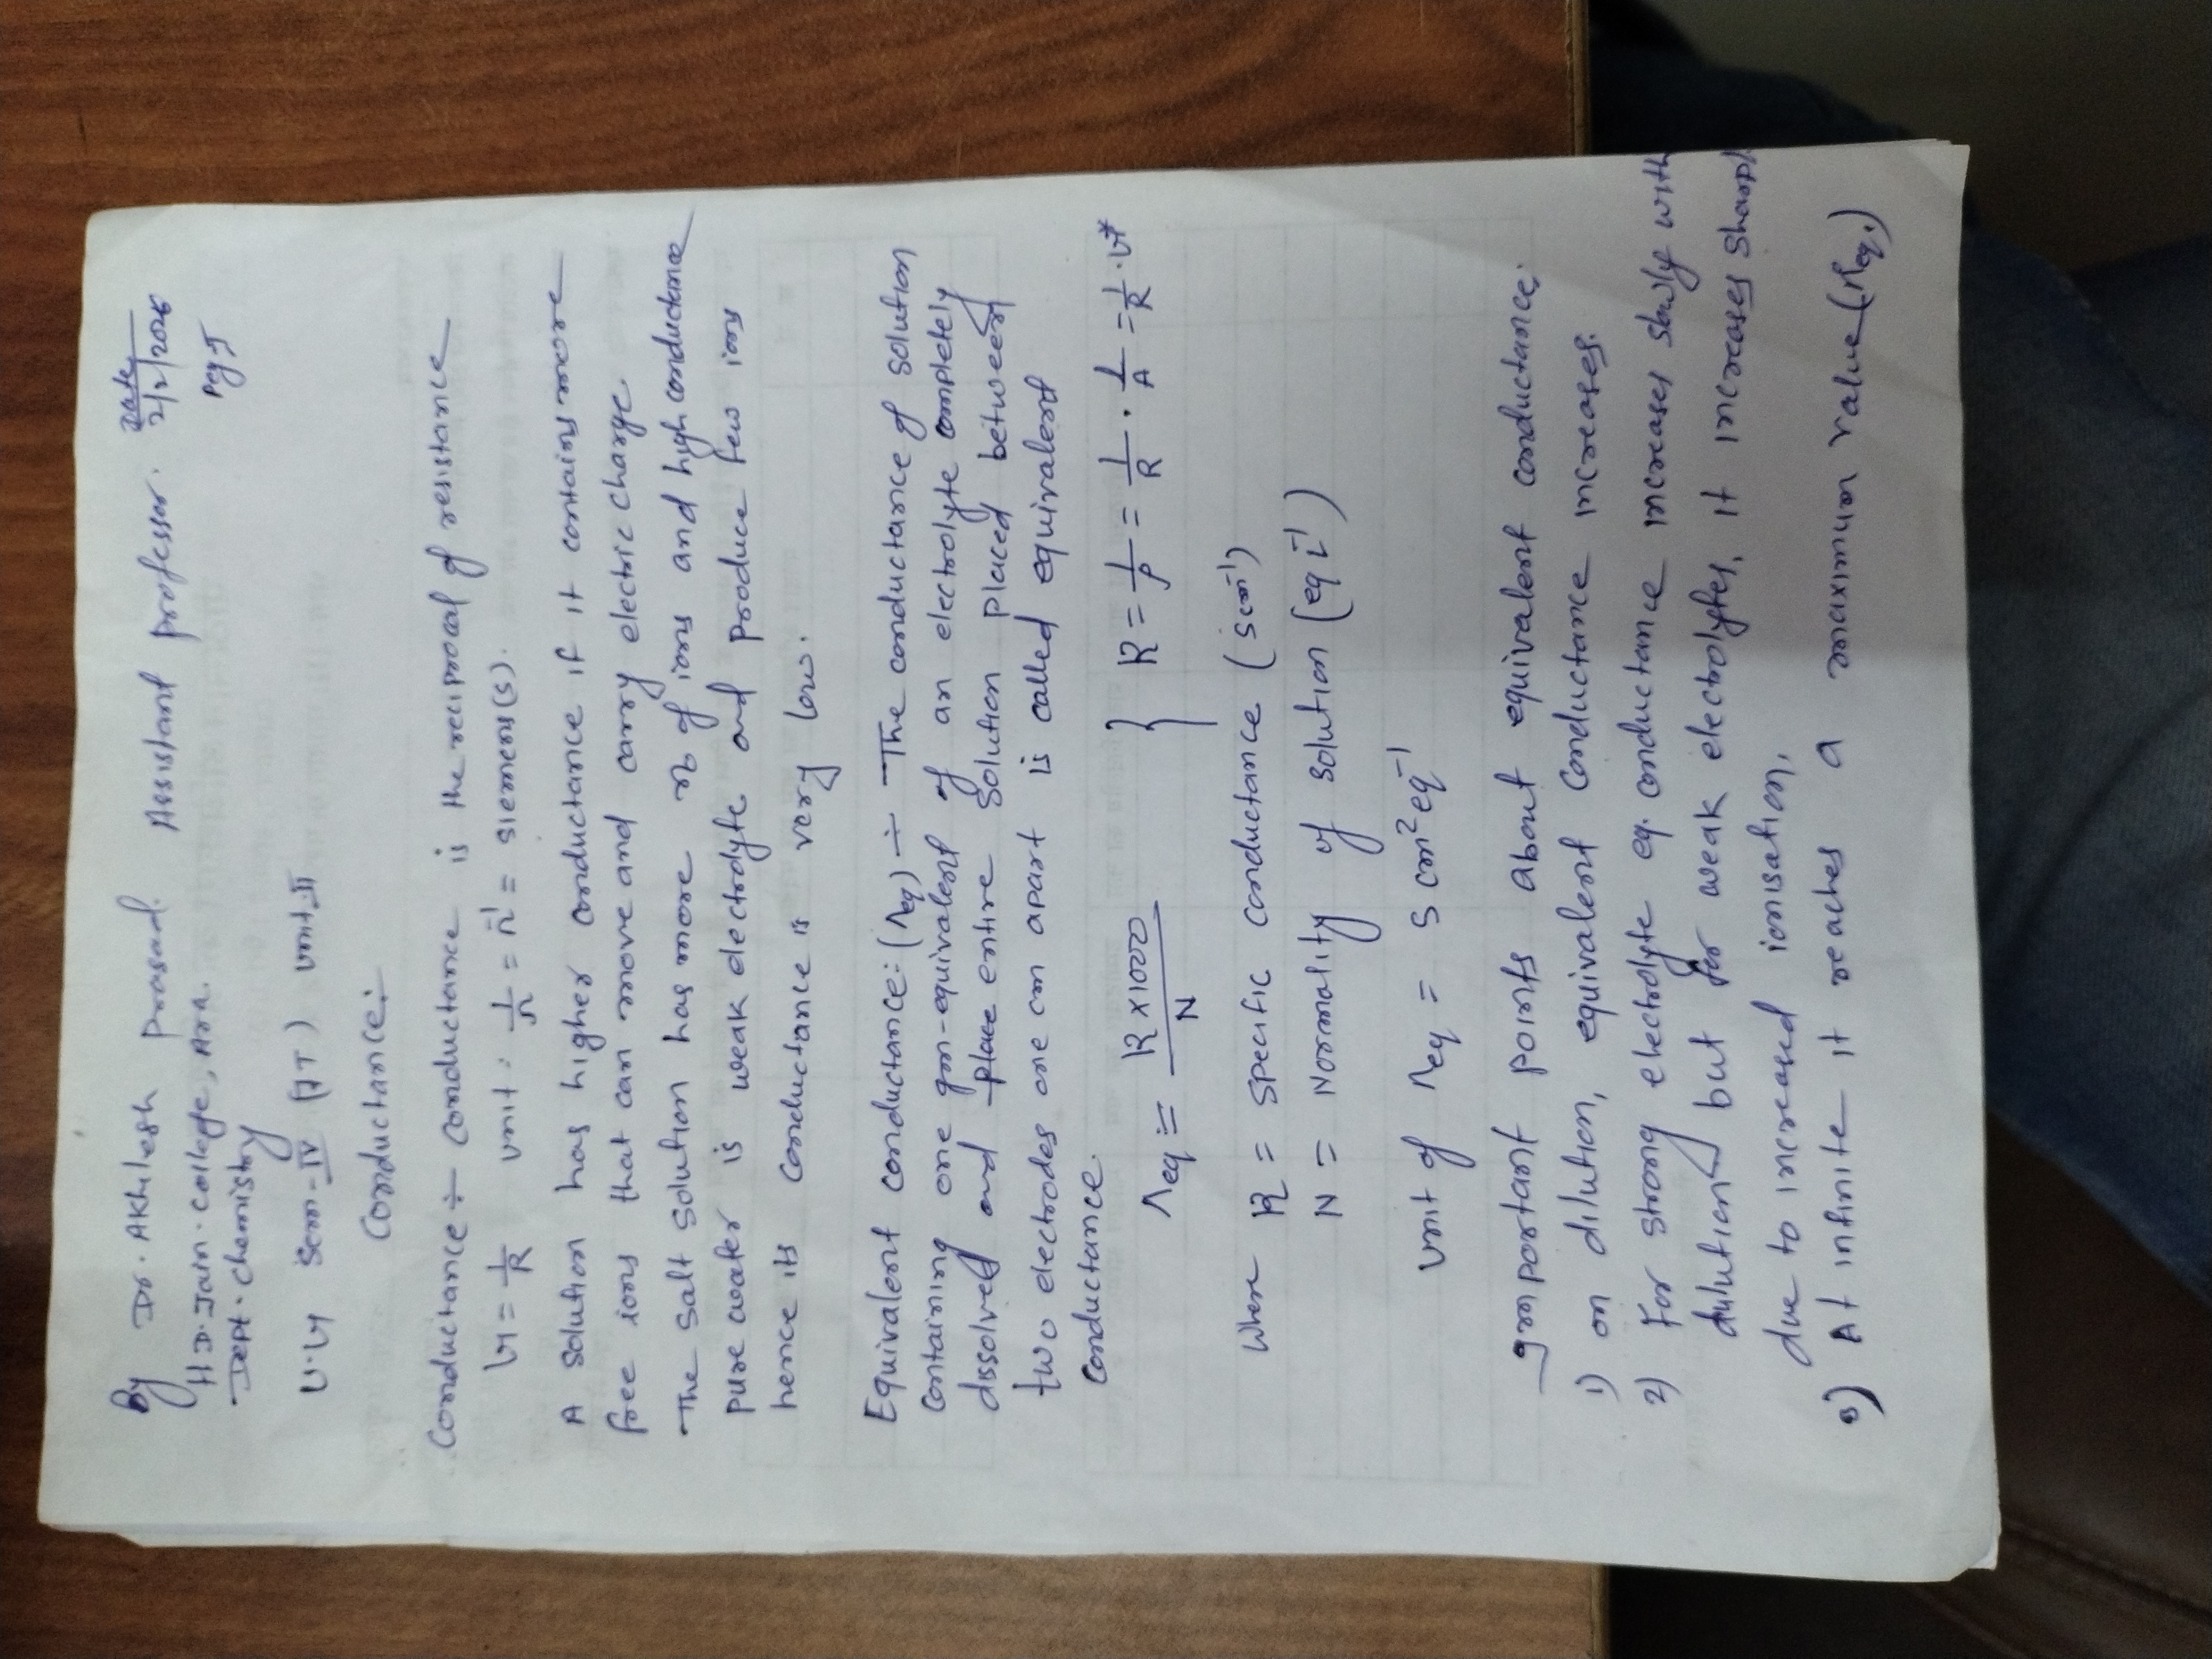 By Dr. Akhilesh prasad. Assistant professor. Date 2/2/2026
H.D. Jain. college, Ara. Pg I
Dept. chemistry
U.G Sem-IV (PT) unit-II
Conductance:-
Conductance ÷ conductance is the reciprocal of resistance
G = 1/R unit. 1/Ω = Ω⁻¹ = siemens(s).
A solution has higher conductance if it contains more
free ions that can move and carry electric charge.
The salt solution has more no of ions and high conductance
pure water is weak electrolyte and produce few ions
hence its conductance is very low.
Equivalent conductance:(Λeq) ÷ The conductance of solution
containing one gm-equivalent of an electrolyte completely
dissolved and place entire solution placed between
two electrodes one cm apart is called equivalent
conductance.
Λeq = K×1000/N } K = 1/ρ = 1/R . l/A = 1/R . G*
Where K = specific conductance (s cm⁻¹)
N = Normality of solution (eq L⁻¹)
Unit of Λeq = S cm² eq⁻¹
Important points about equivalent conductance.
1) on dilution, equivalent conductance increases.
2) For strong electrolyte eq. conductance increases slowly with
dilution but for weak electrolytes, it increases sharpl
due to increased ionisation,
3) At infinite it reaches a maximum value (Λeq.)